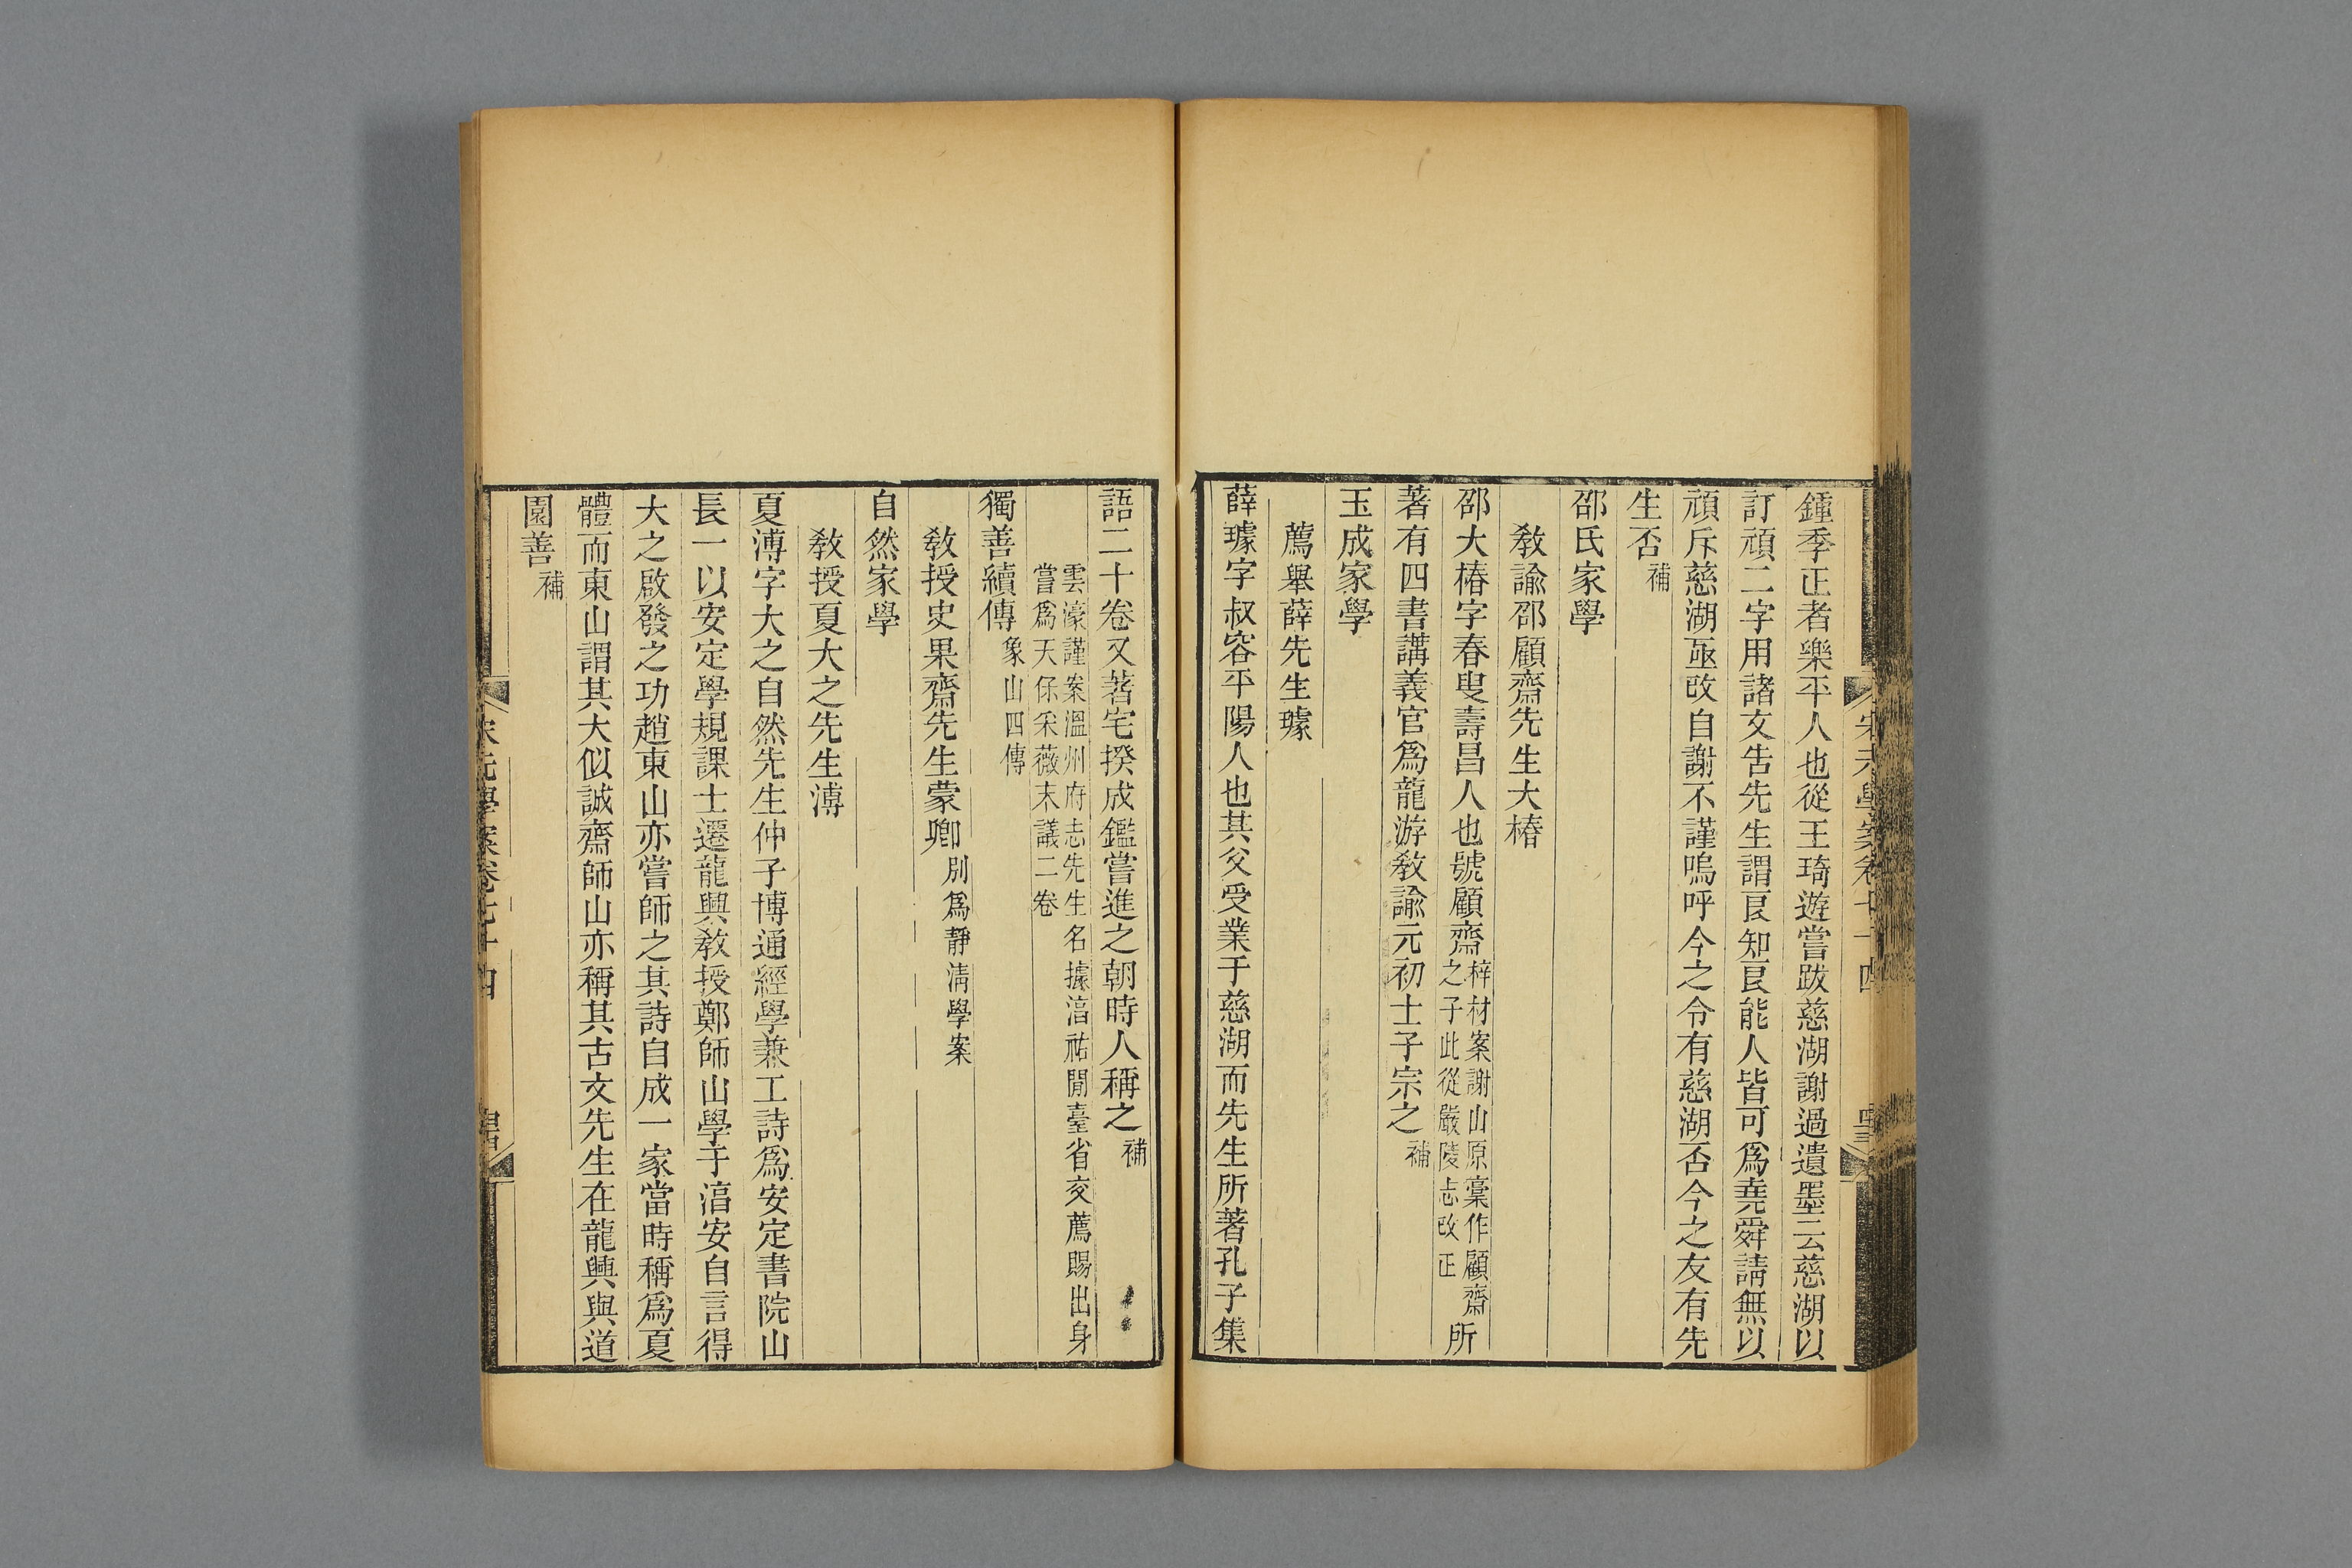 鍾季正者樂平人也從王琦遊嘗跋慈湖謝過遺墨云慈湖以
訂頑二字用諸文告先生謂良知良能人皆可爲堯舜請無以
頑斥慈湖亟改自謝不謹嗚呼今之令有慈湖否今之友有先
生否補
邵氏家學
敎諭邵顧齋先生大椿
邵大椿字春叟壽昌人也號顧齋梓材案謝山原稾作顧齋所
之子此從嚴陵志改正
著有四書講義官爲龍游敎諭元初士子宗之補
玉成家學
薦舉薛先生璩
薛璩字叔容平陽人也其父受業于慈湖而先生所著孔子集
語二十卷又著宅揆成鑑嘗進之朝時人稱之補
雲濠謹案溫州府志先生名據淳祐閒臺省交薦賜出身
嘗爲天保采薇末議二卷
獨善續傳象山四傳
敎授史果齋先生蒙卿別爲靜淸學案
自然家學
敎授夏大之先生溥
夏溥字大之自然先生仲子博通經學兼工詩爲安定書院山
長一以安定學規課士遷龍興敎授鄭師山學于淳安自言得
大之啟發之功趙東山亦嘗師之其詩自成一家當時稱爲夏
體而東山謂其大似誠齋師山亦稱其古文先生在龍興與道
園善補
宋元學案卷七十四